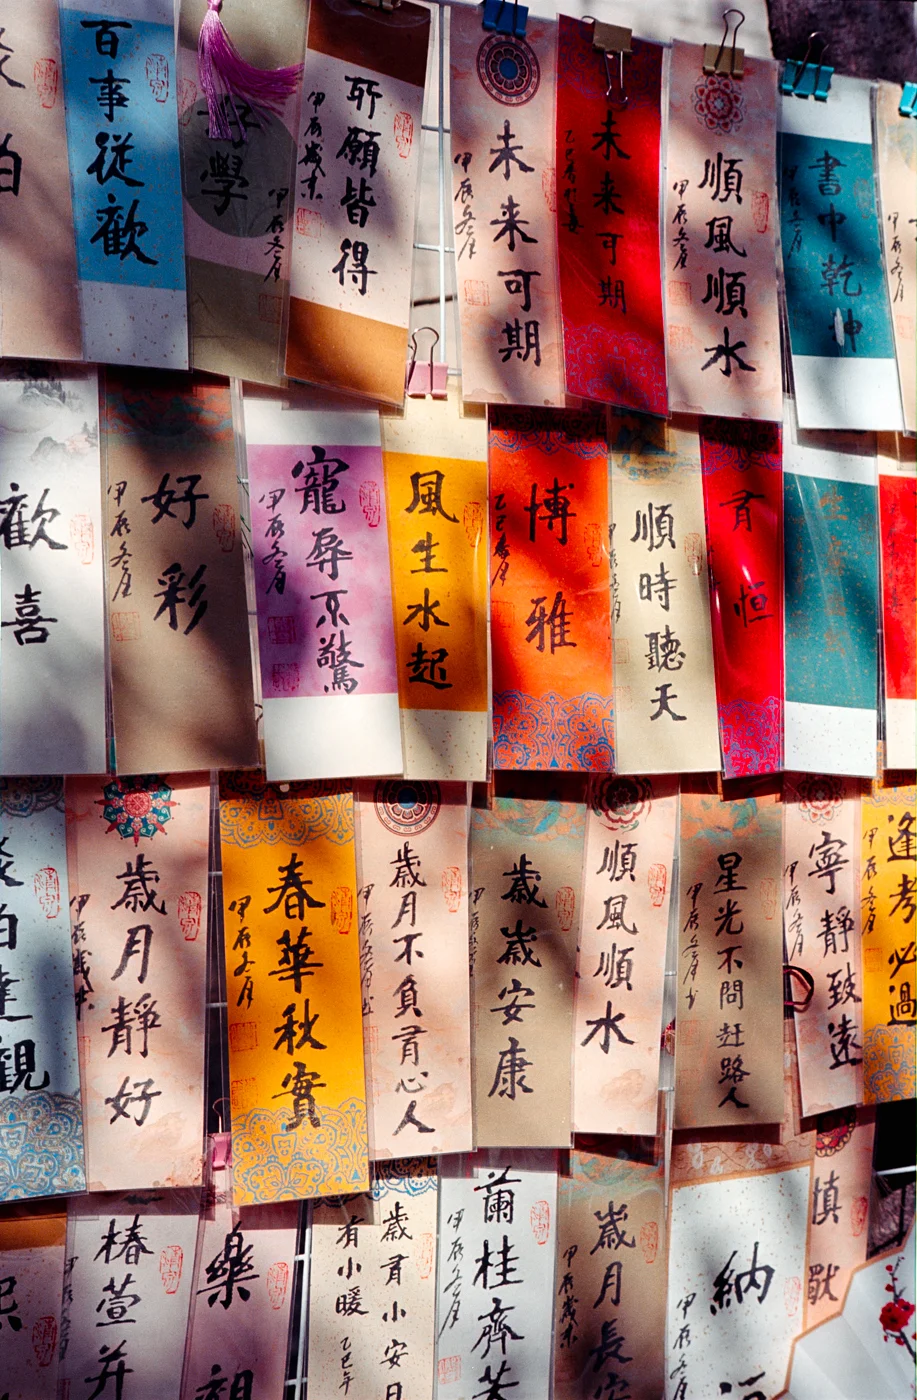 百事從歡
好學
甲辰冬月
所願皆得
甲辰歲末
未來可期
甲辰冬月
未來可期
順風順水
甲辰冬月
書中乾坤
歡喜
好彩
甲辰冬月
寵辱不驚
甲辰冬月
風生水起
博雅
順時聽天
甲辰冬月
有恒
歲月靜好
甲辰歲末
春華秋實
甲辰冬月
歲月不負有心人
甲辰冬月
歲歲安康
甲辰冬月
順風順水
星光不問赶路人
甲辰冬月
寧靜致遠
甲辰冬月
逢考必過
甲辰冬月
椿萱并
樂
歲有小安
有小暖
乙巳年
蘭桂齊
甲辰冬月
歲月長安
甲辰歲末
納
甲辰冬月
慎獨